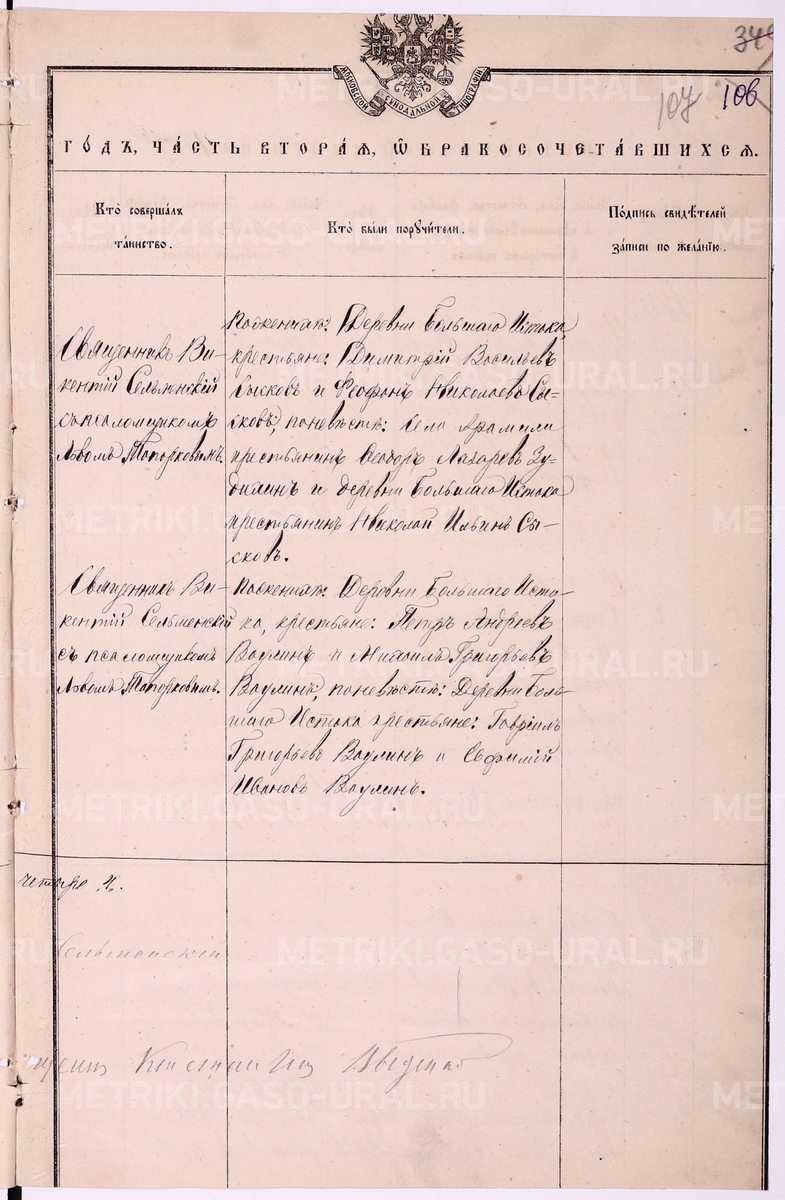 34
107 106
МОСКОВСКОЙ СѴНОДАЛЬНОЙ ТИПОГРАФІИ
ГО́ДЪ, ЧА́СТЬ ВТОРА́Ѧ, Ѽ БРАКОСОЧЕТА́ВШИХСѦ.
Кто̀ соверша́лъ
та́инство.
Кто̀ бы́ли порꙋчи́тели.
По́дпись свидѣ́телей
за́писи по жела́нїю.
Священникъ Ви-
кентій Сельменскій
съ псаломщикомъ
Львомъ Топорковымъ.
По женихѣ: Деревни Большаго Истока,
крестьяне: Димитрій Васильевъ
Сысковъ и Феофанъ Николаевъ Сы-
сковъ, по невѣстѣ: Села Арамили
крестьянинъ Ѳеодоръ Лазаревъ Зу-
билинъ и деревни Большаго Истока
крестьянинъ Николай Ильинъ Сы-
сковъ.
Священникъ Ви-
кентій Сельменскій
съ псаломщикомъ
Львомъ Топорковымъ.
По женихѣ: Деревни Большаго Исто-
ка, крестьяне: Петръ Андреевъ
Ваулинъ и Михаилъ Григорьевъ
Ваулинъ, по невѣстѣ: Деревни Боль-
шаго Истока крестьяне: Гавріилъ
Григорьевъ Ваулинъ и Евфимій
Ивановъ Ваулинъ.
четыре 4.
Сельменскій
METRIKI.GASO-URAL.RU